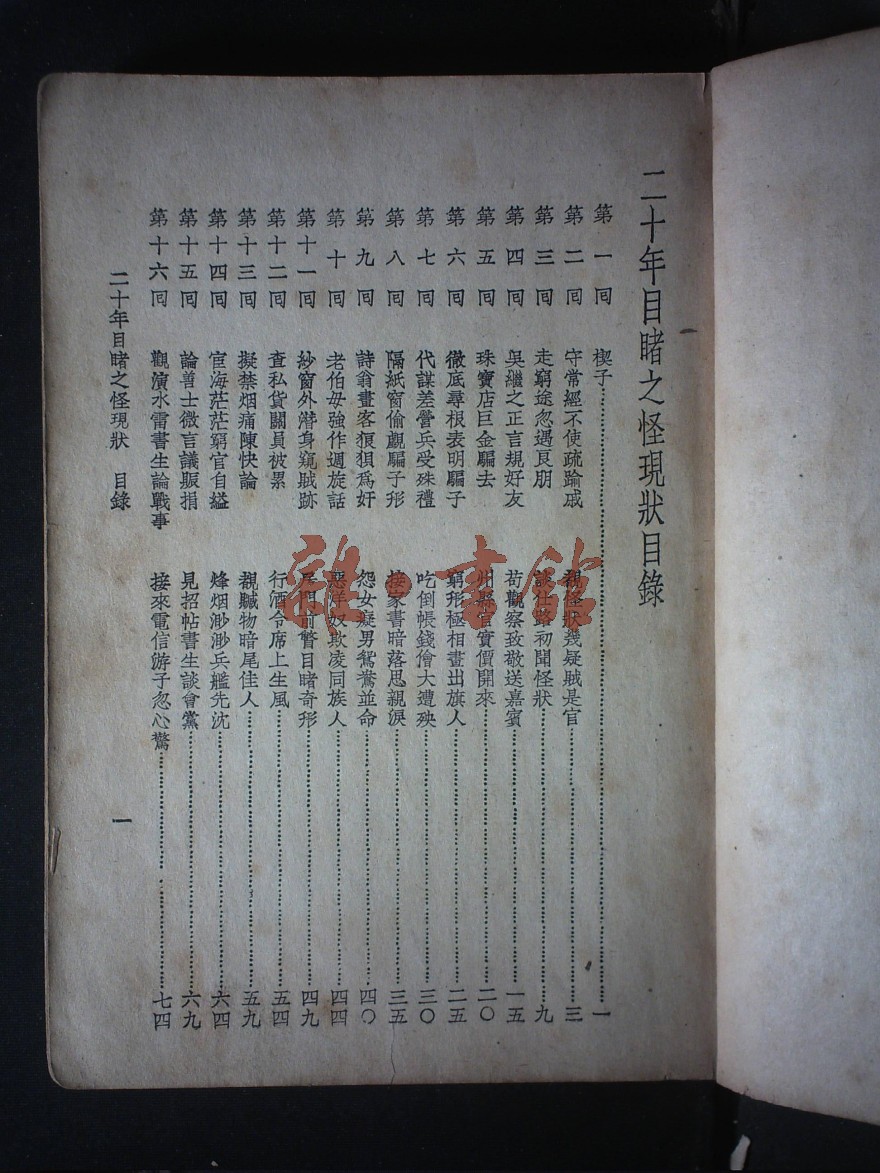 二十年目睹之怪現狀目錄
第一回 楔子……一
第二回 守常經不使疏踰戚 覩怪狀幾疑賊是官……三
第三回 走窮途忽遇良朋 談仕路初聞怪狀……九
第四回 吳繼之正言規好友 苟觀察致敬送嘉賓……一五
第五回 珠寶店巨金騙去 州縣官實價開來……二〇
第六回 徹底尋根表明騙子 窮形極相畫出旗人……二五
第七回 代謀差營兵受殊禮 吃倒帳錢儈大遭殃……三〇
第八回 隔紙窗偷覷騙子形 接家書暗落思親淚……三五
第九回 詩翁畫客狼狽爲奸 怨女癡男鴛鴦並命……四〇
第十回 老伯母強作週旋話 惡洋奴欺凌同族人……四四
第十一回 紗窗外潛身窺賊跡 房門前瞥目睹奇形……四九
第十二回 查私貨關員被累 行酒令席上生風……五四
第十三回 擬禁烟痛陳快論 覩贓物暗尾佳人……五九
第十四回 宦海茫茫窮官自縊 烽烟渺渺兵艦先沈……六四
第十五回 論善士微言議賑捐 見招帖書生談會黨……六九
第十六回 觀演水雷書生論戰事 接來電信游子忽心驚……七四
二十年目睹之怪現狀 目錄 一
雜·書館